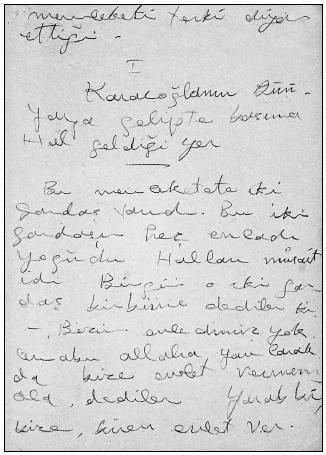 memlebeti terki diyar
ettiği -
I
Karacoğlanın Dün-
yaya gelipte başına
Hal geldiği yer
Bu memleketete iki
gardaş vardı. Bu iki
gardaşın heç evladı
yoğudu Halları müsait
idi Birgün o iki gar
daş birbirine dediler ki
-, Bizim evledimiz yok
allaha, yalvarak
da bize evlet
dediler Yarabbi,
bize, birer evlet ver.